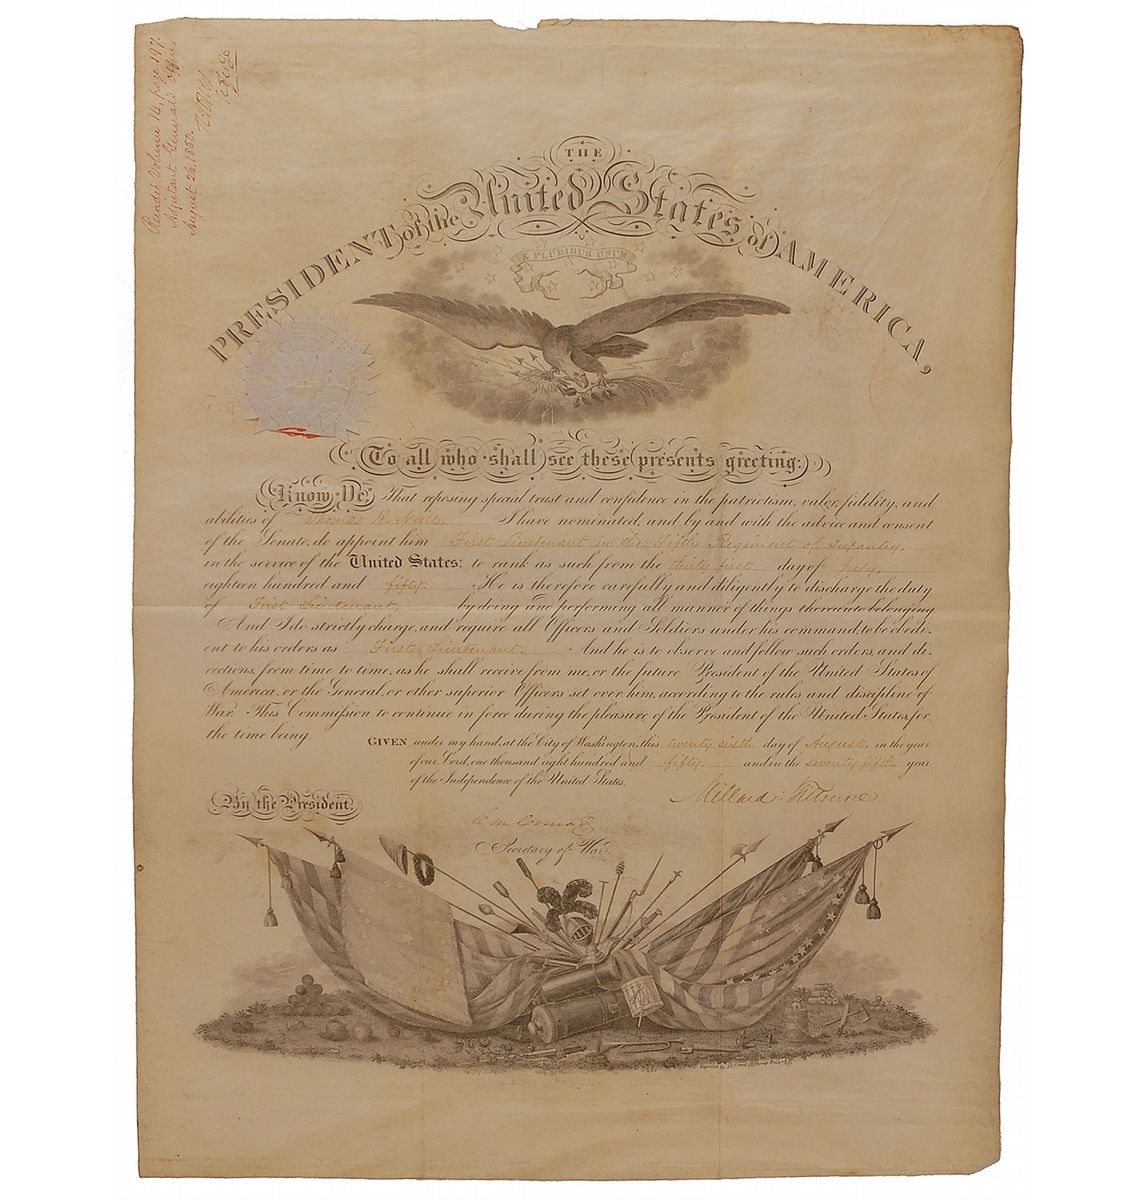 Recorded Volume 14, page 197.
Adjutant General's Office
August 26. 1850.
THE
PRESIDENT of the United States of AMERICA,
E PLURIBUS UNUM
To all who shall see these presents greeting:
Know Ye, That reposing special trust and confidence in the patriotism, valor, fidelity, and
abilities of Thomas H. Neill, I have nominated, and by and with the advice and consent
of the Senate, do appoint him First Lieutenant in the Fifth Regiment of Infantry,
in the service of the United States: to rank as such from the thirty first day of July,
eighteen hundred and fifty. He is therefore carefully and diligently to discharge the duty
of First Lieutenant, by doing and performing all manner of things thereunto belonging
And I do strictly charge, and require all Officers and Soldiers under his command, to be obedi-
ent to his orders as First Lieutenant. And he is to observe and follow such orders, and di-
rections, from time to time, as he shall receive from me, or the future President of the United States of
America, or the General, or other superior Officers set over him, according to the rules and discipline of
War. This Commission to continue in force during the pleasure of the President of the United States, for
the time being.
GIVEN under my hand, at the City of Washington, this twenty sixth day of August, in the year
of our Lord, one thousand eight hundred and fifty. and in the seventy fifth year
of the Independence of the United States.
Millard Fillmore
By the President.
C M Conrad
Secretary of War.
Engraved by